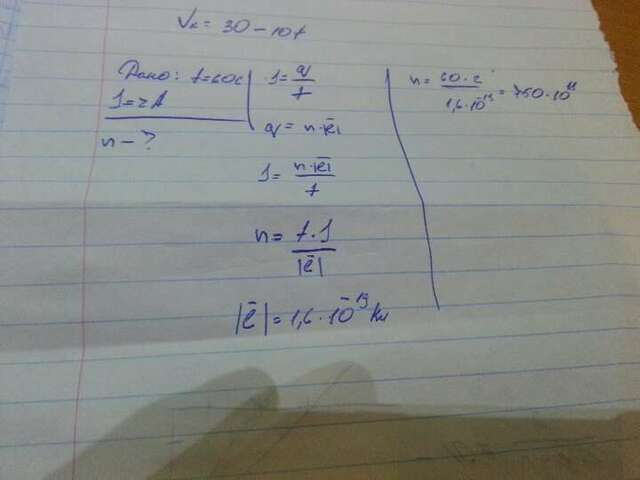 Vx = 30 - 10t
Дано: t=60c
I=2A
n - ?
I = q/t
q = n·|ē|
I = n·|ē|/t
n = t·I/|ē|
|ē| = 1,6·10⁻¹⁹ Кл
n = 60·2/1,6·10⁻¹⁹ = 750·10¹⁸